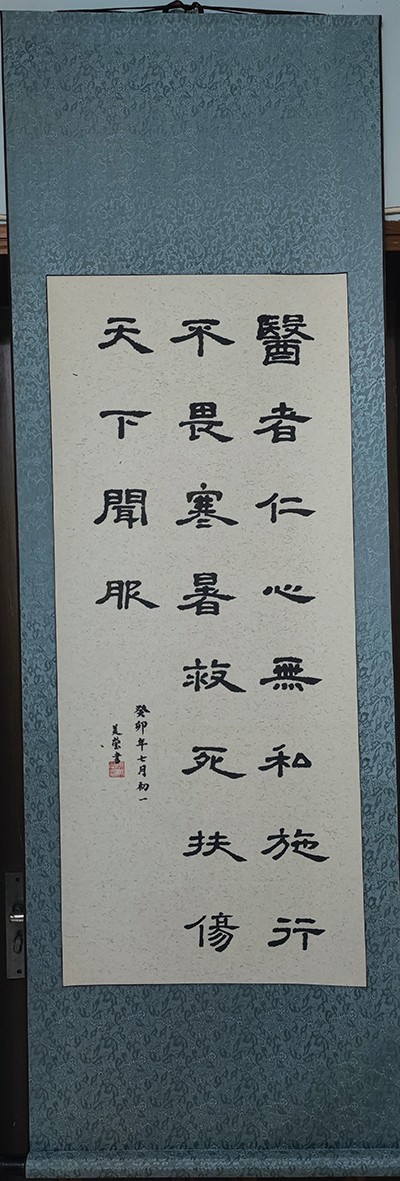 醫者仁心無私施行
不畏寒暑救死扶傷
天下聞服
癸卯年七月初一
美莹書